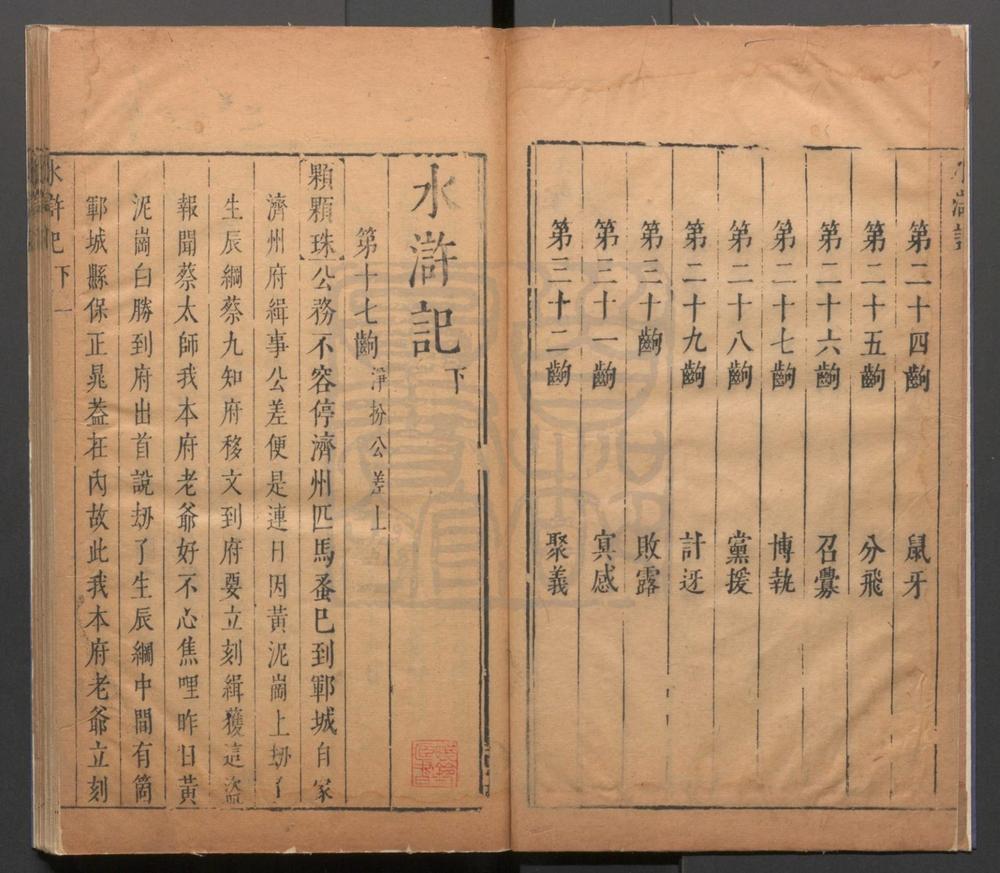 第二十四齣 鼠牙
第二十五齣 分飛
第二十六齣 召釁
第二十七齣 博執
第二十八齣 黨援
第二十九齣 計迓
第三十齣 敗露
第三十一齣 冥感
第三十二齣 聚義
水滸記下
第十七齣 淨扮公差上
顆顆珠公務不容停濟州匹馬蚤已到鄆城自家
濟州府緝事公差便是連日因黃泥崗上刼了
生辰綱蔡九知府移文到府要立刻緝獲這盜
報聞蔡太師我本府老爺好不心焦哩昨日黃
泥崗白勝到府出首說刼了生辰綱中間有箇
鄆城縣保正晁葢在內故此我本府老爺立刻
水滸記 下 一